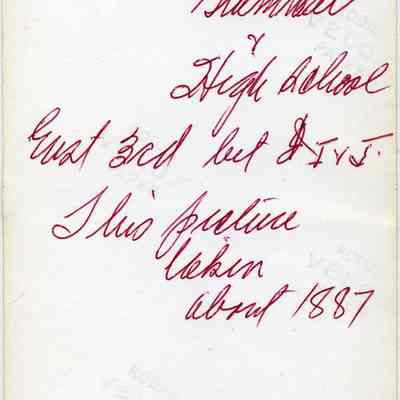 Grammar
&
High School
East 3rd bet I & J.
This picture
taken
about 1887